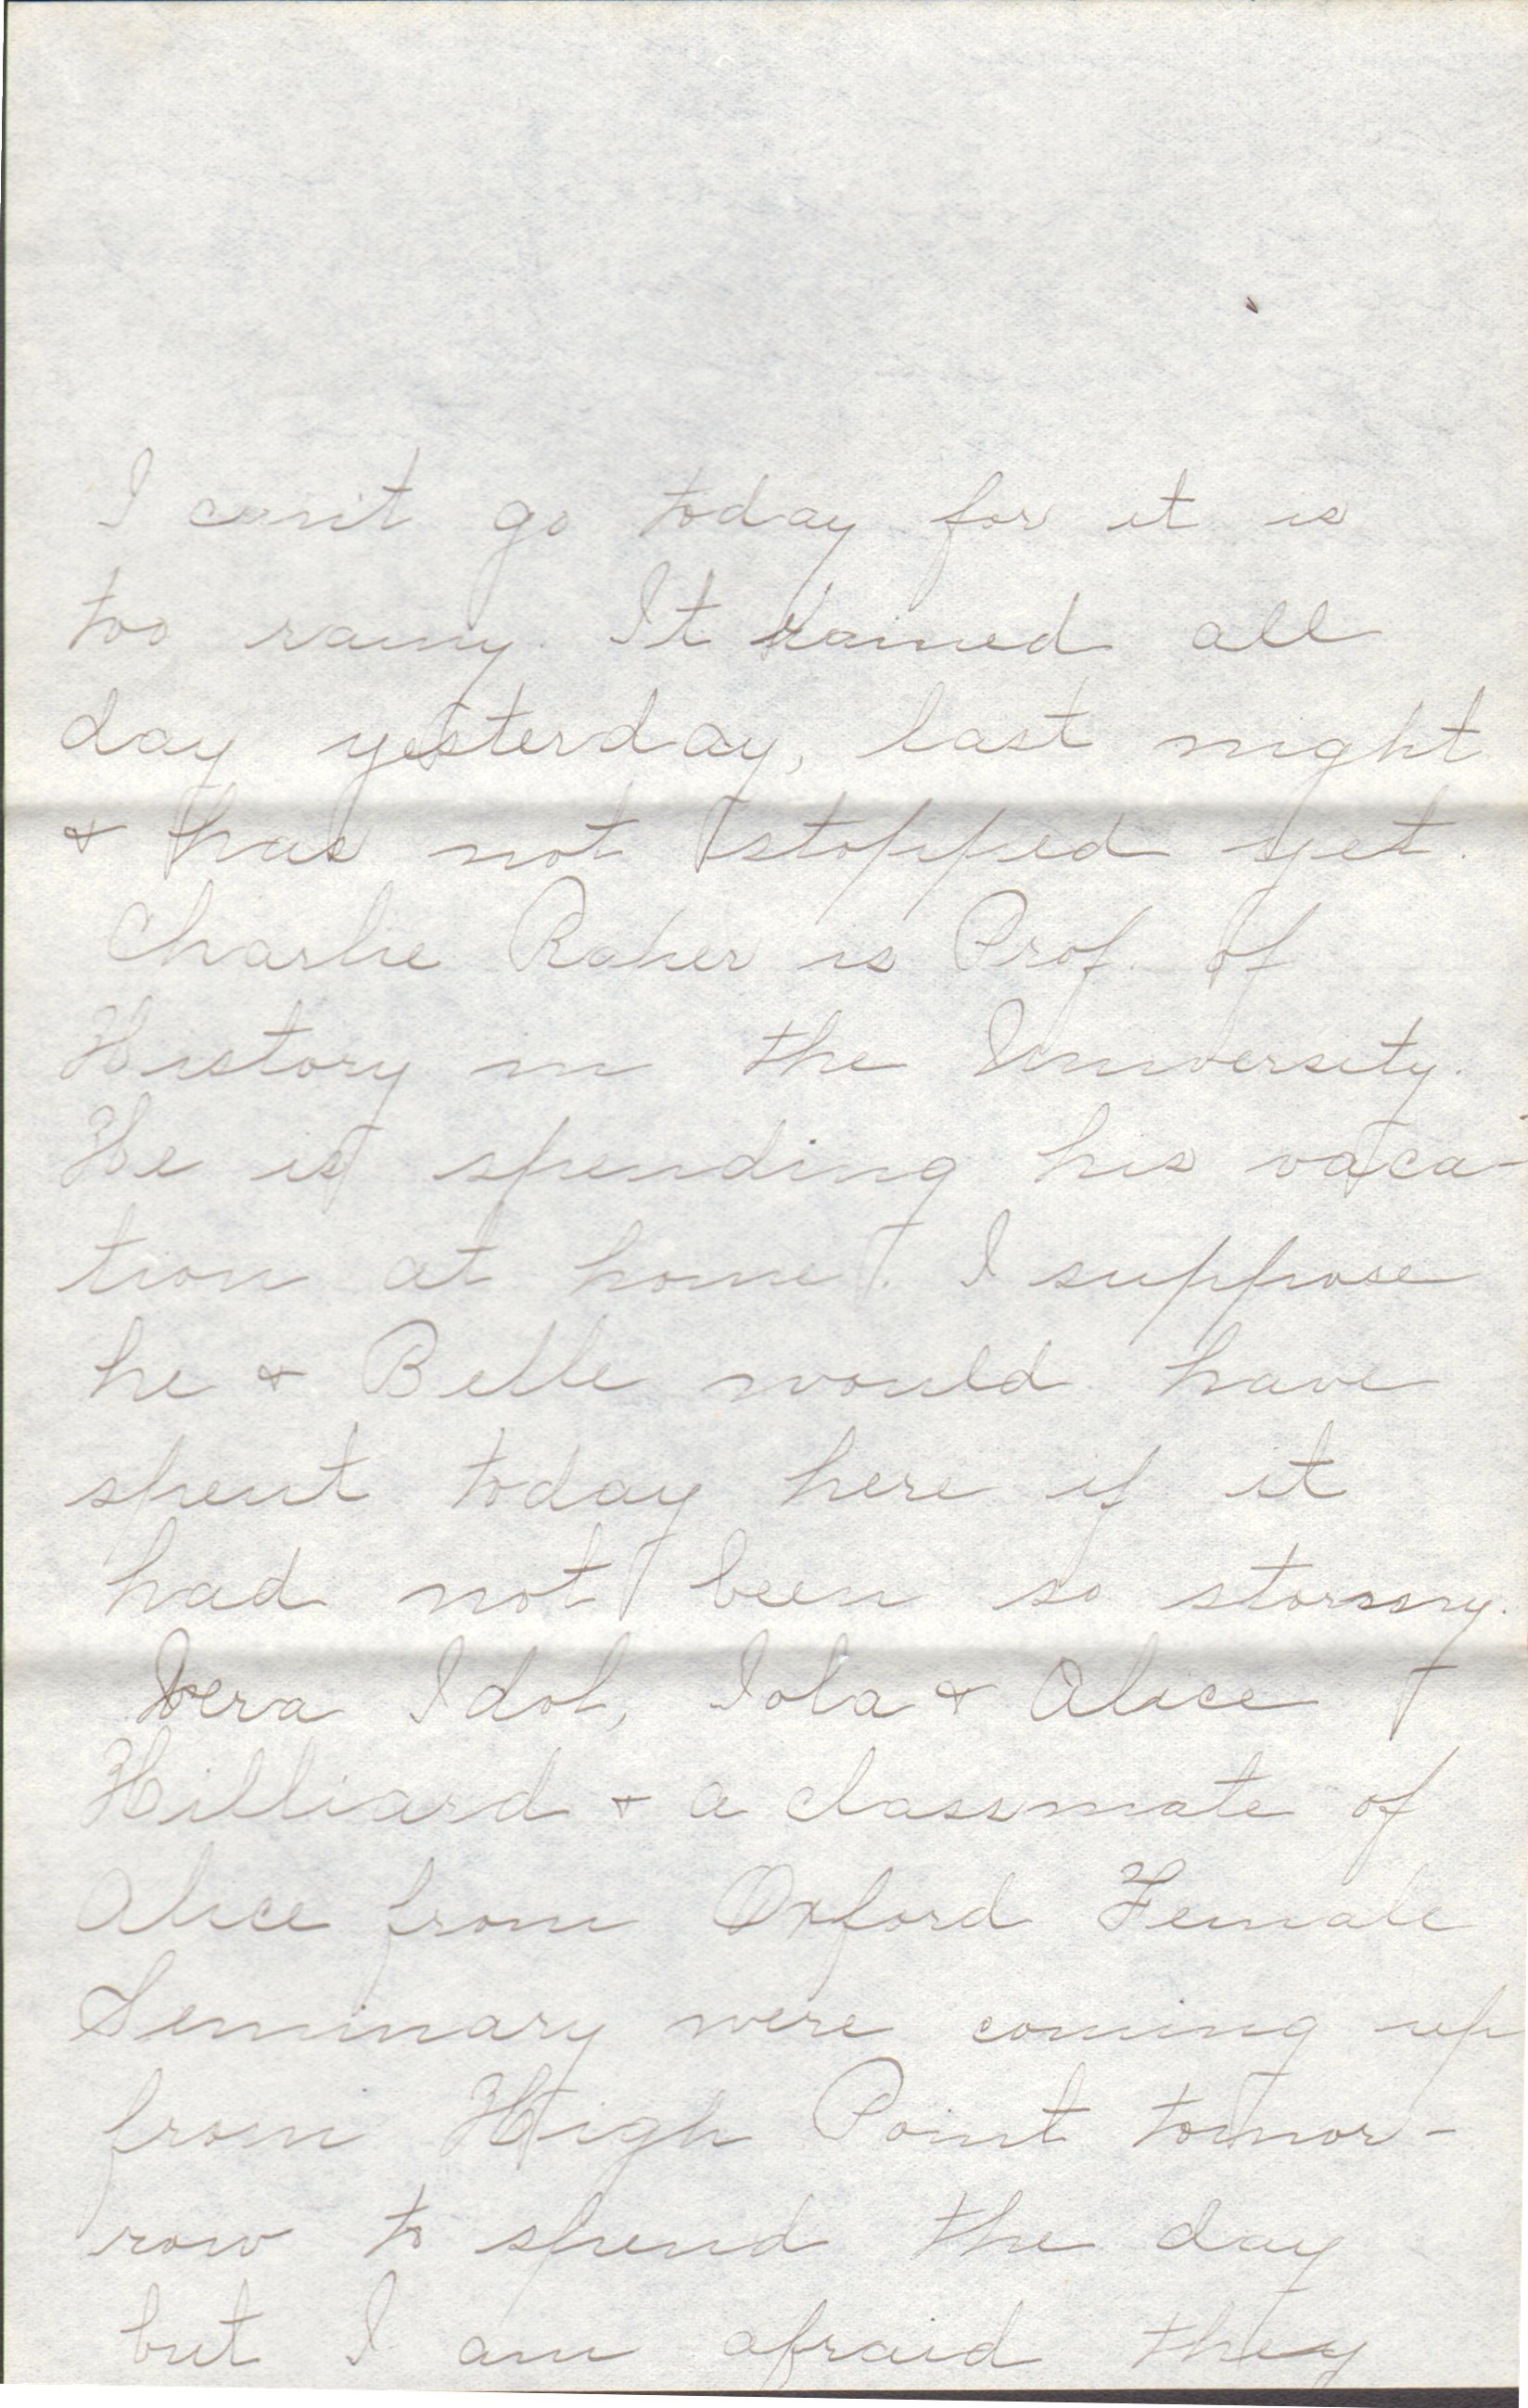 I can't go today for it is
too rainy. It rained all
day yesterday, last night
& has not stopped yet.
Charlie Raper is Prof. of
History in the University.
He is spending his vaca-
tion at home. I suppose
he & Belle would have
spent today here if it
had not been so stormy.
Vera Idol, Iola & Alice
Hilliard & a classmate of
Alice from Oxford Female
Seminary were coming up
from High Point tomor-
row to spend the day
but I am afraid they